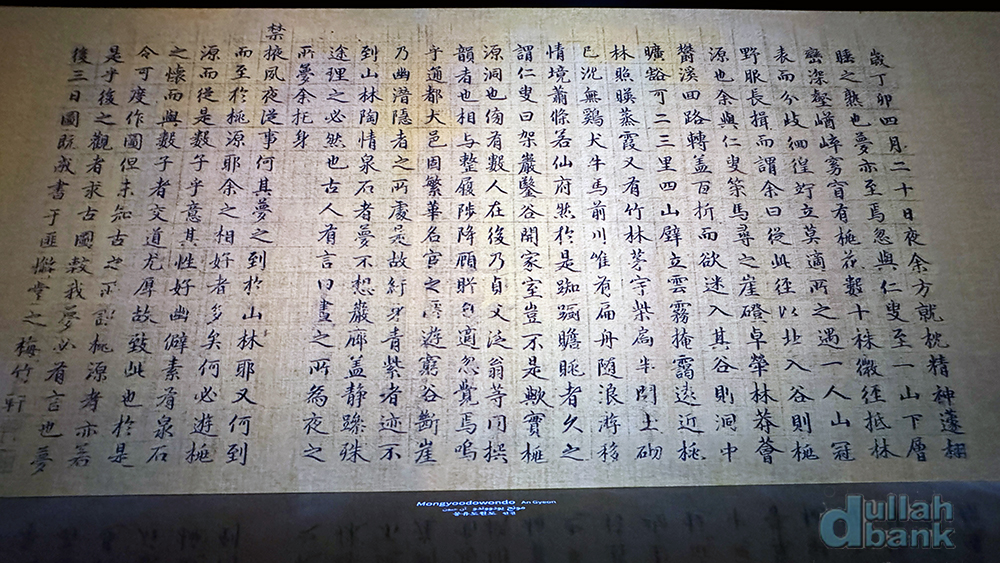 歲丁卯四月二十日夜余方就枕精神蘧栩
睡之熟也夢亦至焉忽與仁叟至一山下層
巒深壑崷崒窈窅有桃花數十株微徑抵林
表而分歧細徊竚立莫適所之遇一人山冠
野服長揖而謂余曰從此徑以北入谷則桃
源也余與仁叟策馬尋之崖磴卓犖林莽薈
欝溪回路轉盖百折而欲迷入其谷則洞中
曠豁可二三里四山壁立雲霧掩靄遠近桃
林照暎蒸霞又有竹林茅宇柴扃半開土砌
已沈無鷄犬牛馬前川唯有扁舟隨浪游移
情境蕭條若仙府然於是踟躕瞻眺者久之
謂仁叟曰架巖鑿谷開家室豈不是歟實桃
源洞也傍有數人在後乃貞父泛翁等同撰
韻者也相與整履陟降顧眄自適忽覺焉嗚
乎通都大邑固繁華名宦之所遊窮谷斷崖
乃幽潛隱者之所處是故紆身青紫者迹不
到山林陶情泉石者夢不想巖廊盖静躁殊
途理之必然也古人有言曰晝之所爲夜之
所夢余托身
禁掖夙夜從事何其夢之到於山林耶又何到
而至於桃源耶余之相好者多矣何必遊桃
源而從是數子乎意其性好幽僻素有泉石
之懷而與數子者交道尤厚故致此也於是
令可度作圖但未知古之所謂桃源者亦若
是乎後之觀者求古圖較我夢必有言也夢
後三日圖既成書于匪懈堂之梅竹軒
Mongyoodowondo An Gyeon
몽유도원도 안견
dullah
bank